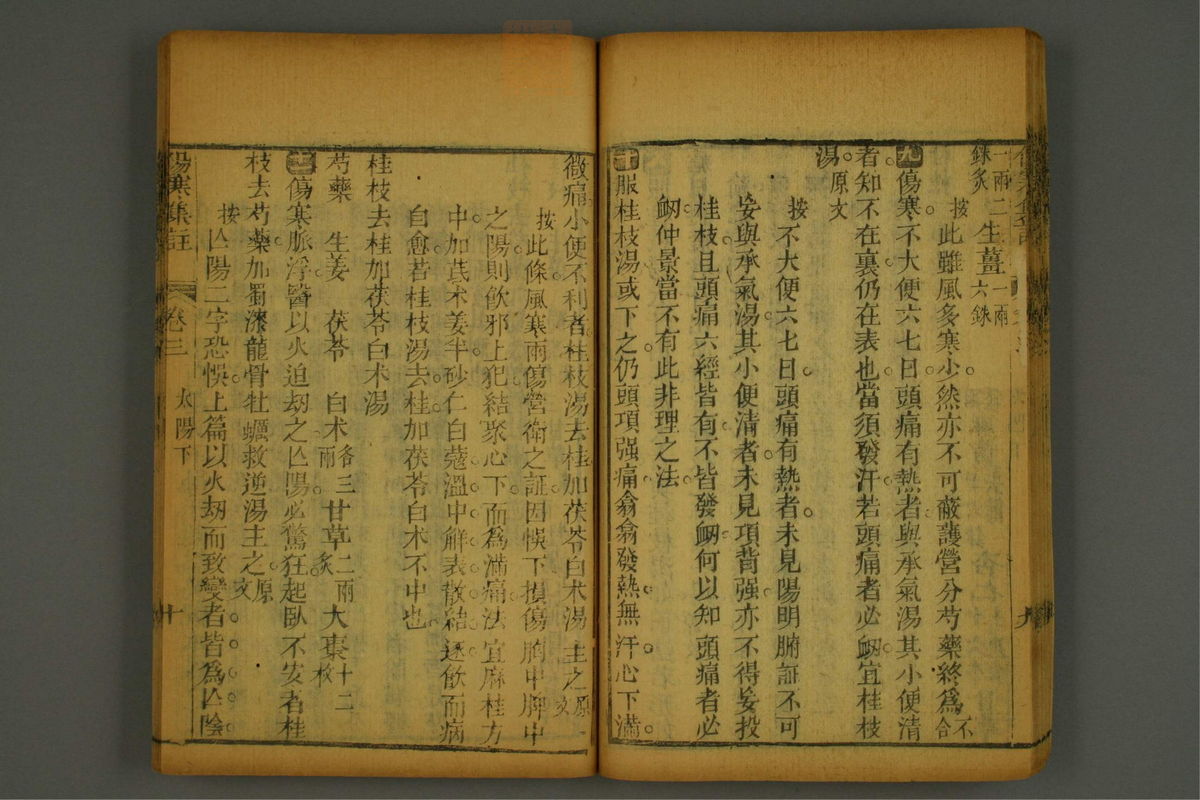 一兩二銖炙 生薑一兩六銖
按此雖風多寒少然亦不可蔽護營分芍藥終爲不合
九傷寒不大便六七日頭痛有熱者與承氣湯其小便清
者知不在裏仍在表也當須發汗若頭痛者必衂宜桂枝
湯原文
按不大便六七日頭痛有熱者未見陽明腑証不可
妄與承氣湯其小便清者未見項背强亦不得妄投
桂枝且頭痛六經皆有不皆發衂何以知頭痛者必
衂仲景當不有此非理之法
十服桂枝湯或下之仍頭項强痛翕翕發熱無汗心下滿
微痛小便不利者桂枝湯去桂加茯苓白术湯主之原文
按此條風寒兩傷營衛之証因悞下損傷胸中脾中
之陽則飲邪上犯結聚心下而爲滿痛法宜麻桂方
中加芪术姜半砂仁白蔻溫中解表散結逐飲而病
自愈若桂枝湯去桂加茯苓白术不中也
桂枝去桂加茯苓白术湯
芍藥 生姜 茯苓 白术各三兩 甘草二兩炙 大棗十二枚
傷寒脈浮醫以火迫刼之亾陽必驚狂起臥不安者桂
枝去芍藥加蜀漆龍骨牡蠣救逆湯主之原文
按亾陽二字恐悞上篇以火刼而致變者皆爲亾陰
傷寒集註 卷三 太陽下 十
九